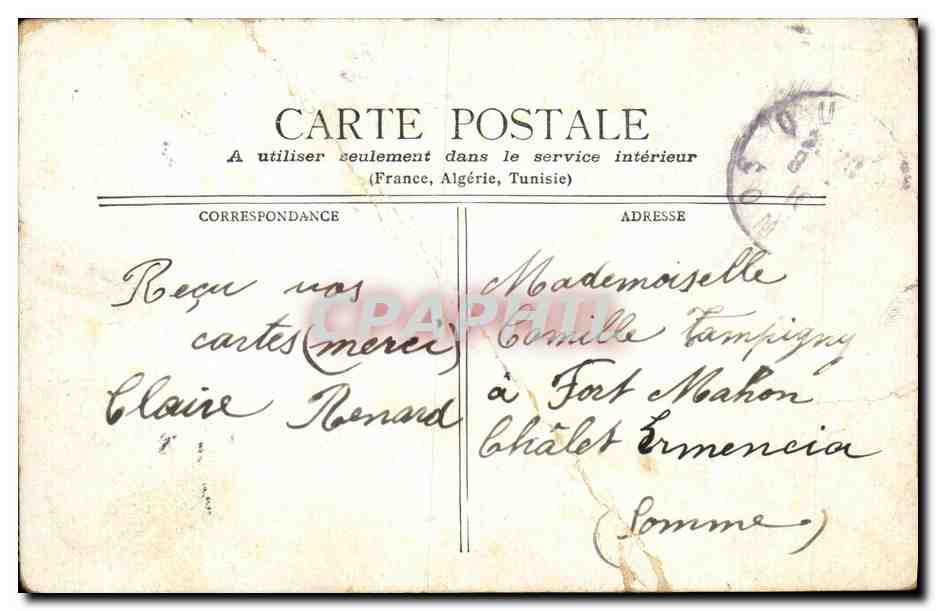 CARTE POSTALE
A utiliser seulement dans le service intérieur
(France, Algérie, Tunisie)
CORRESPONDANCE
Reçu vos
cartes (merci)
Claire Renard
ADRESSE
Mademoiselle
Camille Tampigny
à Fort Mahon
Châlet Ermencia
(Somme)
CPAPHIL